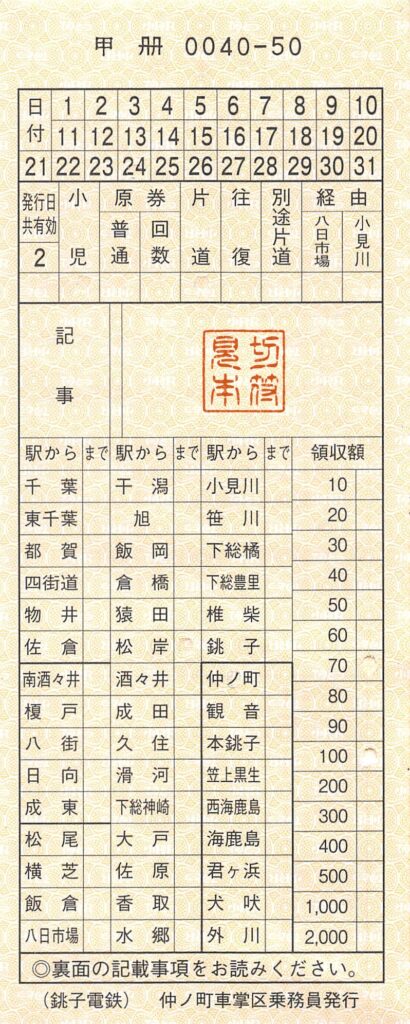 甲 冊 0040-50
日付 1 2 3 4 5 6 7 8 9 10
11 12 13 14 15 16 17 18 19 20
21 22 23 24 25 26 27 28 29 30 31
発行日共有効 小児 原券 片道 往復 別途片道 経由
2 普通 回数 八日市場 小見川
記事
切符見本
駅から まで 駅から まで 駅から まで 領収額
千葉 干潟 小見川 10
東千葉 旭 笹川 20
都賀 飯岡 下総橘 30
四街道 倉橋 下総豊里 40
物井 猿田 椎柴 50
佐倉 松岸 銚子 60
南酒々井 酒々井 仲ノ町 70
榎戸 成田 観音 80
八街 久住 本銚子 90
日向 滑河 笠上黒生 100
成東 下総神崎 西海鹿島 200
松尾 大戸 海鹿島 300
横芝 佐原 君ヶ浜 400
飯倉 香取 犬吠 500
八日市場 水郷 外川 1,000
2,000
◎裏面の記載事項をお読みください。
（銚子電鉄） 仲ノ町車掌区乗務員発行